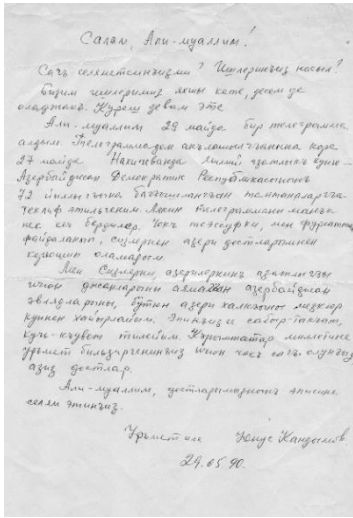 Салам, Али-муаллим!
Сагъ-селяметсинъизми? Ишлеринъиз насыл?
Бизим ишлеримиз яхшы кете, десем де
оладжакъ. Куреш девам эте
Али-муаллим 29 майда бир телеграмма
алдым. Телеграммадан анълашылгъанына коре
27 майда Нахичеванда миллий азатлыкъ куню –
Азербайджан Демократик Республикасынынъ
72 йыллыгъына багъышлангъан тантаналаргъа
теклиф этильгеним. Лякин телеграмманы манъа
пек кеч бердилер. Чокъ теессуфки, мен фурсаттан
файдаланып, сизлернен азери достларымнен
корюшип оламадым.
Мен Сизлерни, азерилернинъ азатлыгъы
ичюн джанларыны аямагъан азербайджан
эвлядларыны, бутюн азери халкъыны мезкюр
куннен хайырлайым. Эпинъизге сабыр-такъат,
кучь-къувет тилейим. Къырымтатар миллетине
урьмет бильдиргенинъиз ичюн чокъ сагъ олунъыз,
азиз достлар.
Али-муаллим, достларымызнынъ эписине
селям айтынъыз.
Урьмет иле Юнус Кандымов.
29.05.90.